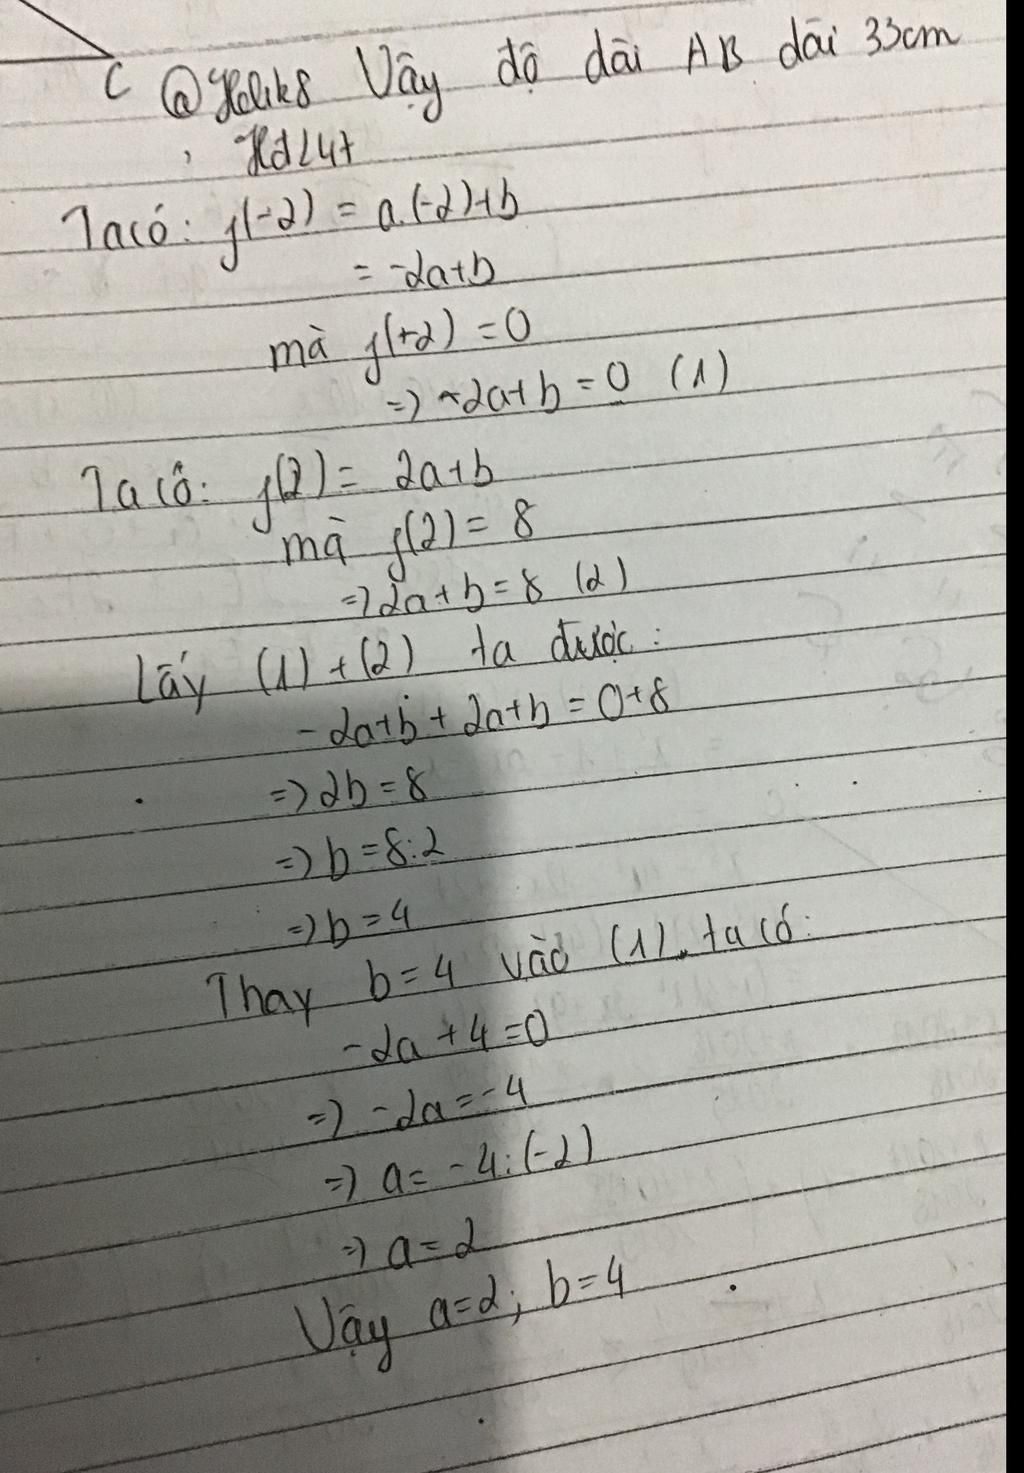 C @Helik8 Vậy độ dài AB dài 33cm
Ta có: f(-2) = a.(-2)+b
= -2a+b
mà f(-2) = 0
=> -2a+b = 0 (1)
Ta có: f(2) = 2a+b
mà f(2) = 8
=> 2a+b = 8 (2)
Lấy (1)+(2) ta được:
-2a+b + 2a+b = 0+8
=> 2b = 8
=> b = 8:2
=> b = 4
Thay b = 4 vào (1), ta có:
-2a + 4 = 0
=> -2a = -4
=> a = -4:(-2)
=> a = 2
Vậy a=2; b=4